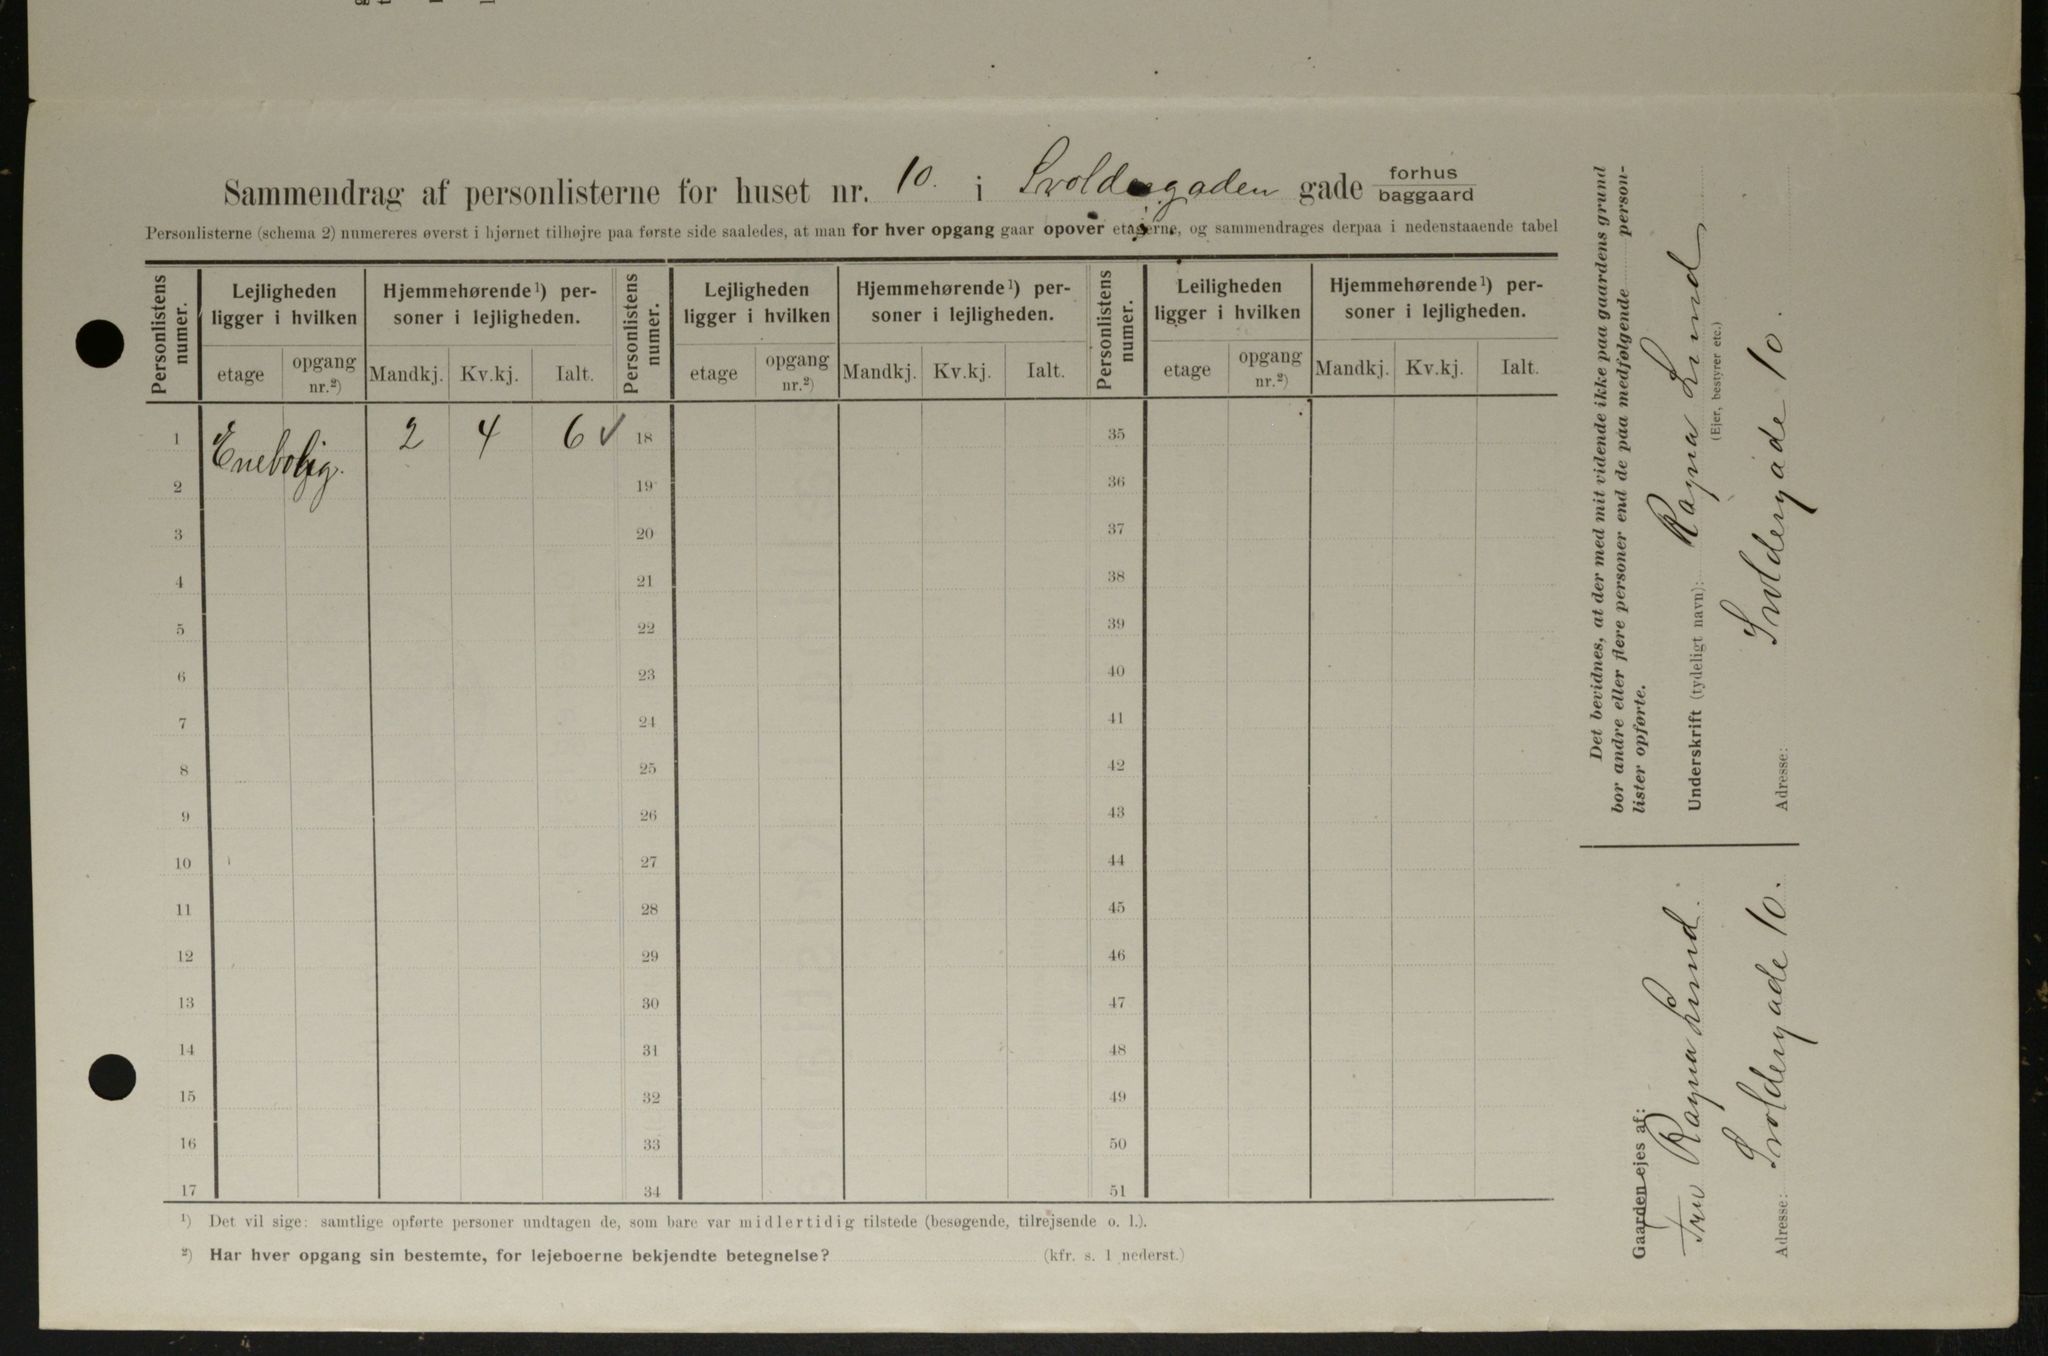 Sammendrag af personlisterne for huset nr. 10. i Svoldergaden gade forhus baggaard
Personlisterne (schema 2) numereres øverst i hjørnet tilhøjre paa første side saaledes, at man for hver opgang gaar opover etagerne, og sammendrages derpaa i nedenstaaende tabel
Personlistens numer.
Lejligheden ligger i hvilken
Hjemmehørende ¹) personer i lejligheden.
Personlistens numer.
Lejligheden ligger i hvilken
Hjemmehørende ¹) personer i lejligheden.
Personlistens numer.
Leiligheden ligger i hvilken
Hjemmehørende ¹) personer i lejligheden.
etage opgang nr.²) Mandkj. Kv.kj. Ialt. etage opgang nr.²) Mandkj. Kv.kj. Ialt. etage opgang nr.²) Mandkj. Kv.kj. Ialt.
1 Enebolig. 2 4 6 ✓ 18 35
2 19 36
3 20 37
4 21 38
5 22 39
6 23 40
7 24 41
8 25 42
9 26 43
10 27 44
11 28 45
12 29 46
13 30 47
14 31 48
15 32 49
16 33 50
17 34 51
¹) Det vil sige: samtlige opførte personer undtagen de, som bare var midlertidig tilstede (besøgende, tilrejsende o. l.).
²) Har hver opgang sin bestemte, for lejeboerne bekjendte betegnelse? (kfr. s. 1 nederst.)
Det bevidnes, at der med mit vidende ikke paa gaardens grund
bor andre eller flere personer end de paa medfølgende person-
lister opførte.
Underskrift (tydeligt navn): Ragna Lund
(Ejer, bestyrer etc.)
Adresse: Svoldergade 10.
Gaarden ejes af:
Fru Ragna Lund.
Adresse: Svoldergade 10.